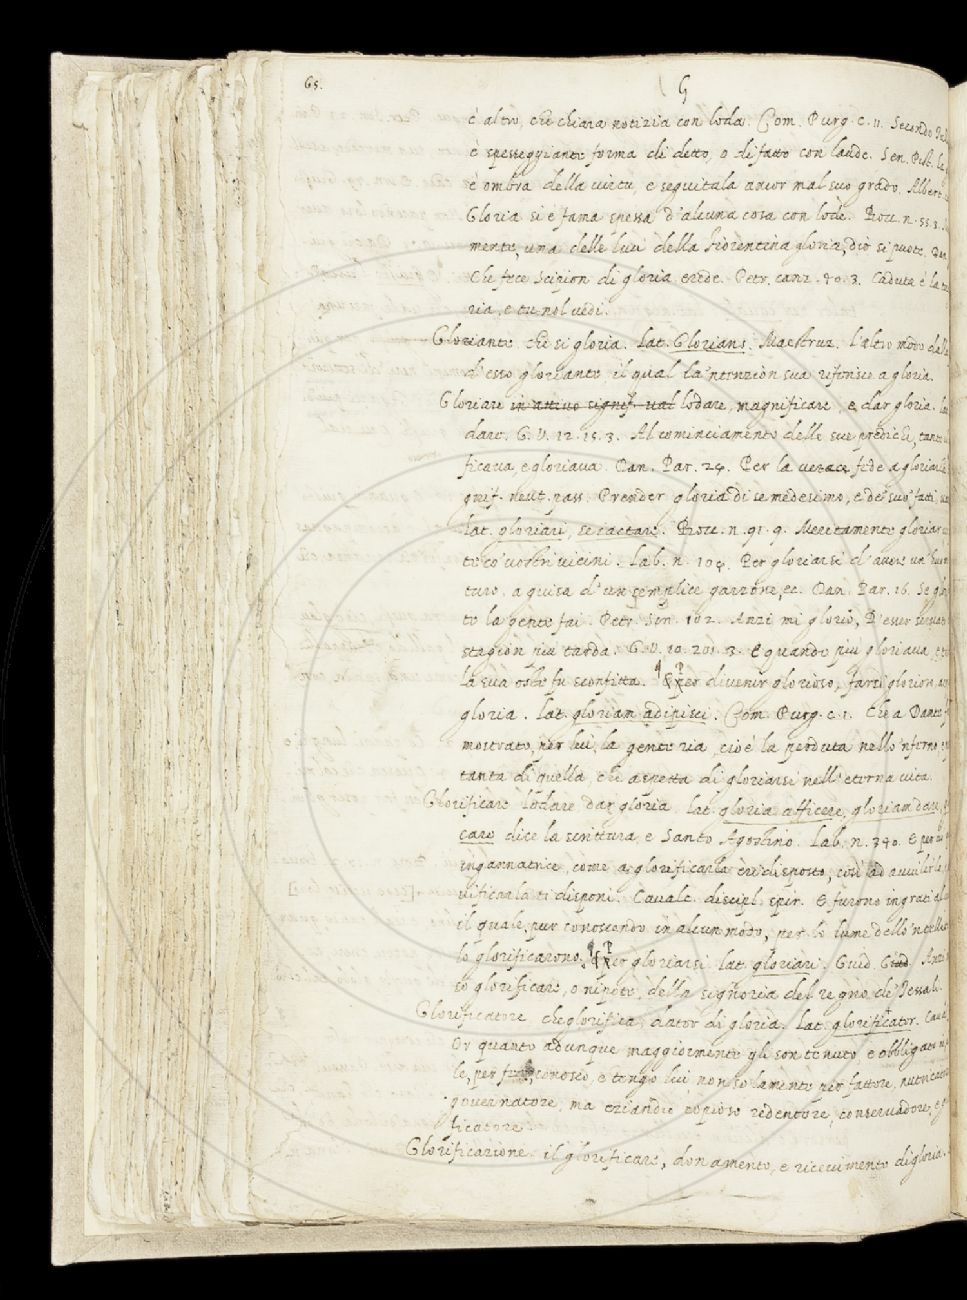 65.
G
è altro, che chiara notizia con loda. Com. Purg. c. 11. Secondo
è spesseggiante forma di detto, o di fatto con laude. Sen. Pist.
è ombra della virtu, e seguitala ancor mal suo grado. Albert.
Gloria si è fama spessa d'alcuna cosa con lode. Bocc. n. 55. 3.
mente, una delle luci della fiorentina gloria, dir si puote. Dan.
Che fece Scipion di gloria erede. Petr. canz. 40. 3. Caduta è la tua
ria, e tu nol vedi.
Gloriante che si gloria. Lat. Glorians. Maestruz. l'altro modo dalla
d'esso gloriante, il qual la 'ntenzion sua riferisce a gloria.
Gloriare in attivo signif. val lodare, magnificare, e dar gloria.
dare. G. V. 12. 15. 3. Al cominciamento delle sue prediche,
ficava, e gloriava. Dan. Par. 24. Per la verace fede a gloriarla
gnif. neut. pass. Prender gloria di se medesimo, e de' suo' fatti,
lat. gloriari, se iactare. Bocc. n. 91. 9. Meritamente gloriar
te co' vostri vicini. Lab. n. 104. Per gloriarsi d'avere un'
turo, a guisa d'un semplice garzone, ec. Dan. Par. 16. Se
to la gente fai. Petr. Son. 102. Anzi mi glorio, D'esser servato
stagion piu tarda. G. V. 10. 201. 3. E quando piu gloriava,
la sua oste fu sconfitta. Per divenir glorioso, farsi glorioso,
gloria. lat. gloriam adipisci. Com. Purg. c. 1. Che a Dante
mostrato, per lui, la gente ria, cioè la perduta nello 'nferno;
tanta di quella, che aspetta di gloriarsi nell'eterna vita.
Glorificare Lodare dar gloria. lat. gloria afficere, gloriam dare,
care dice la scrittura, e Santo Agostino. Lab. n. 340. E
ingannatrice, come a glorificarla eri disposto, così ad avvilirla,
vificarla ti disponi. Cavalc. discipl. spir. E furono ingrati
il quale, pur conoscendo in alcun modo, per lo lume dello 'ntelletto
lo glorificarono. Per gloriarsi lat. gloriari. Guid. Giud.
so glorificare, o nipote, della signoria del regno di Tessali.
Glorificatore che glorifica, dator di gloria. Lat. glorificator.
Or quanto adunque maggiormente gli son tenuto, e obbligato
le, per conosco, e tengo lui non solamente per fattore, nutricatore
governatore, ma eziandio copioso redentore, conservadore, e
ficatore.
Glorificazione. il glorificare, donamento, e ricevimento di gloria.